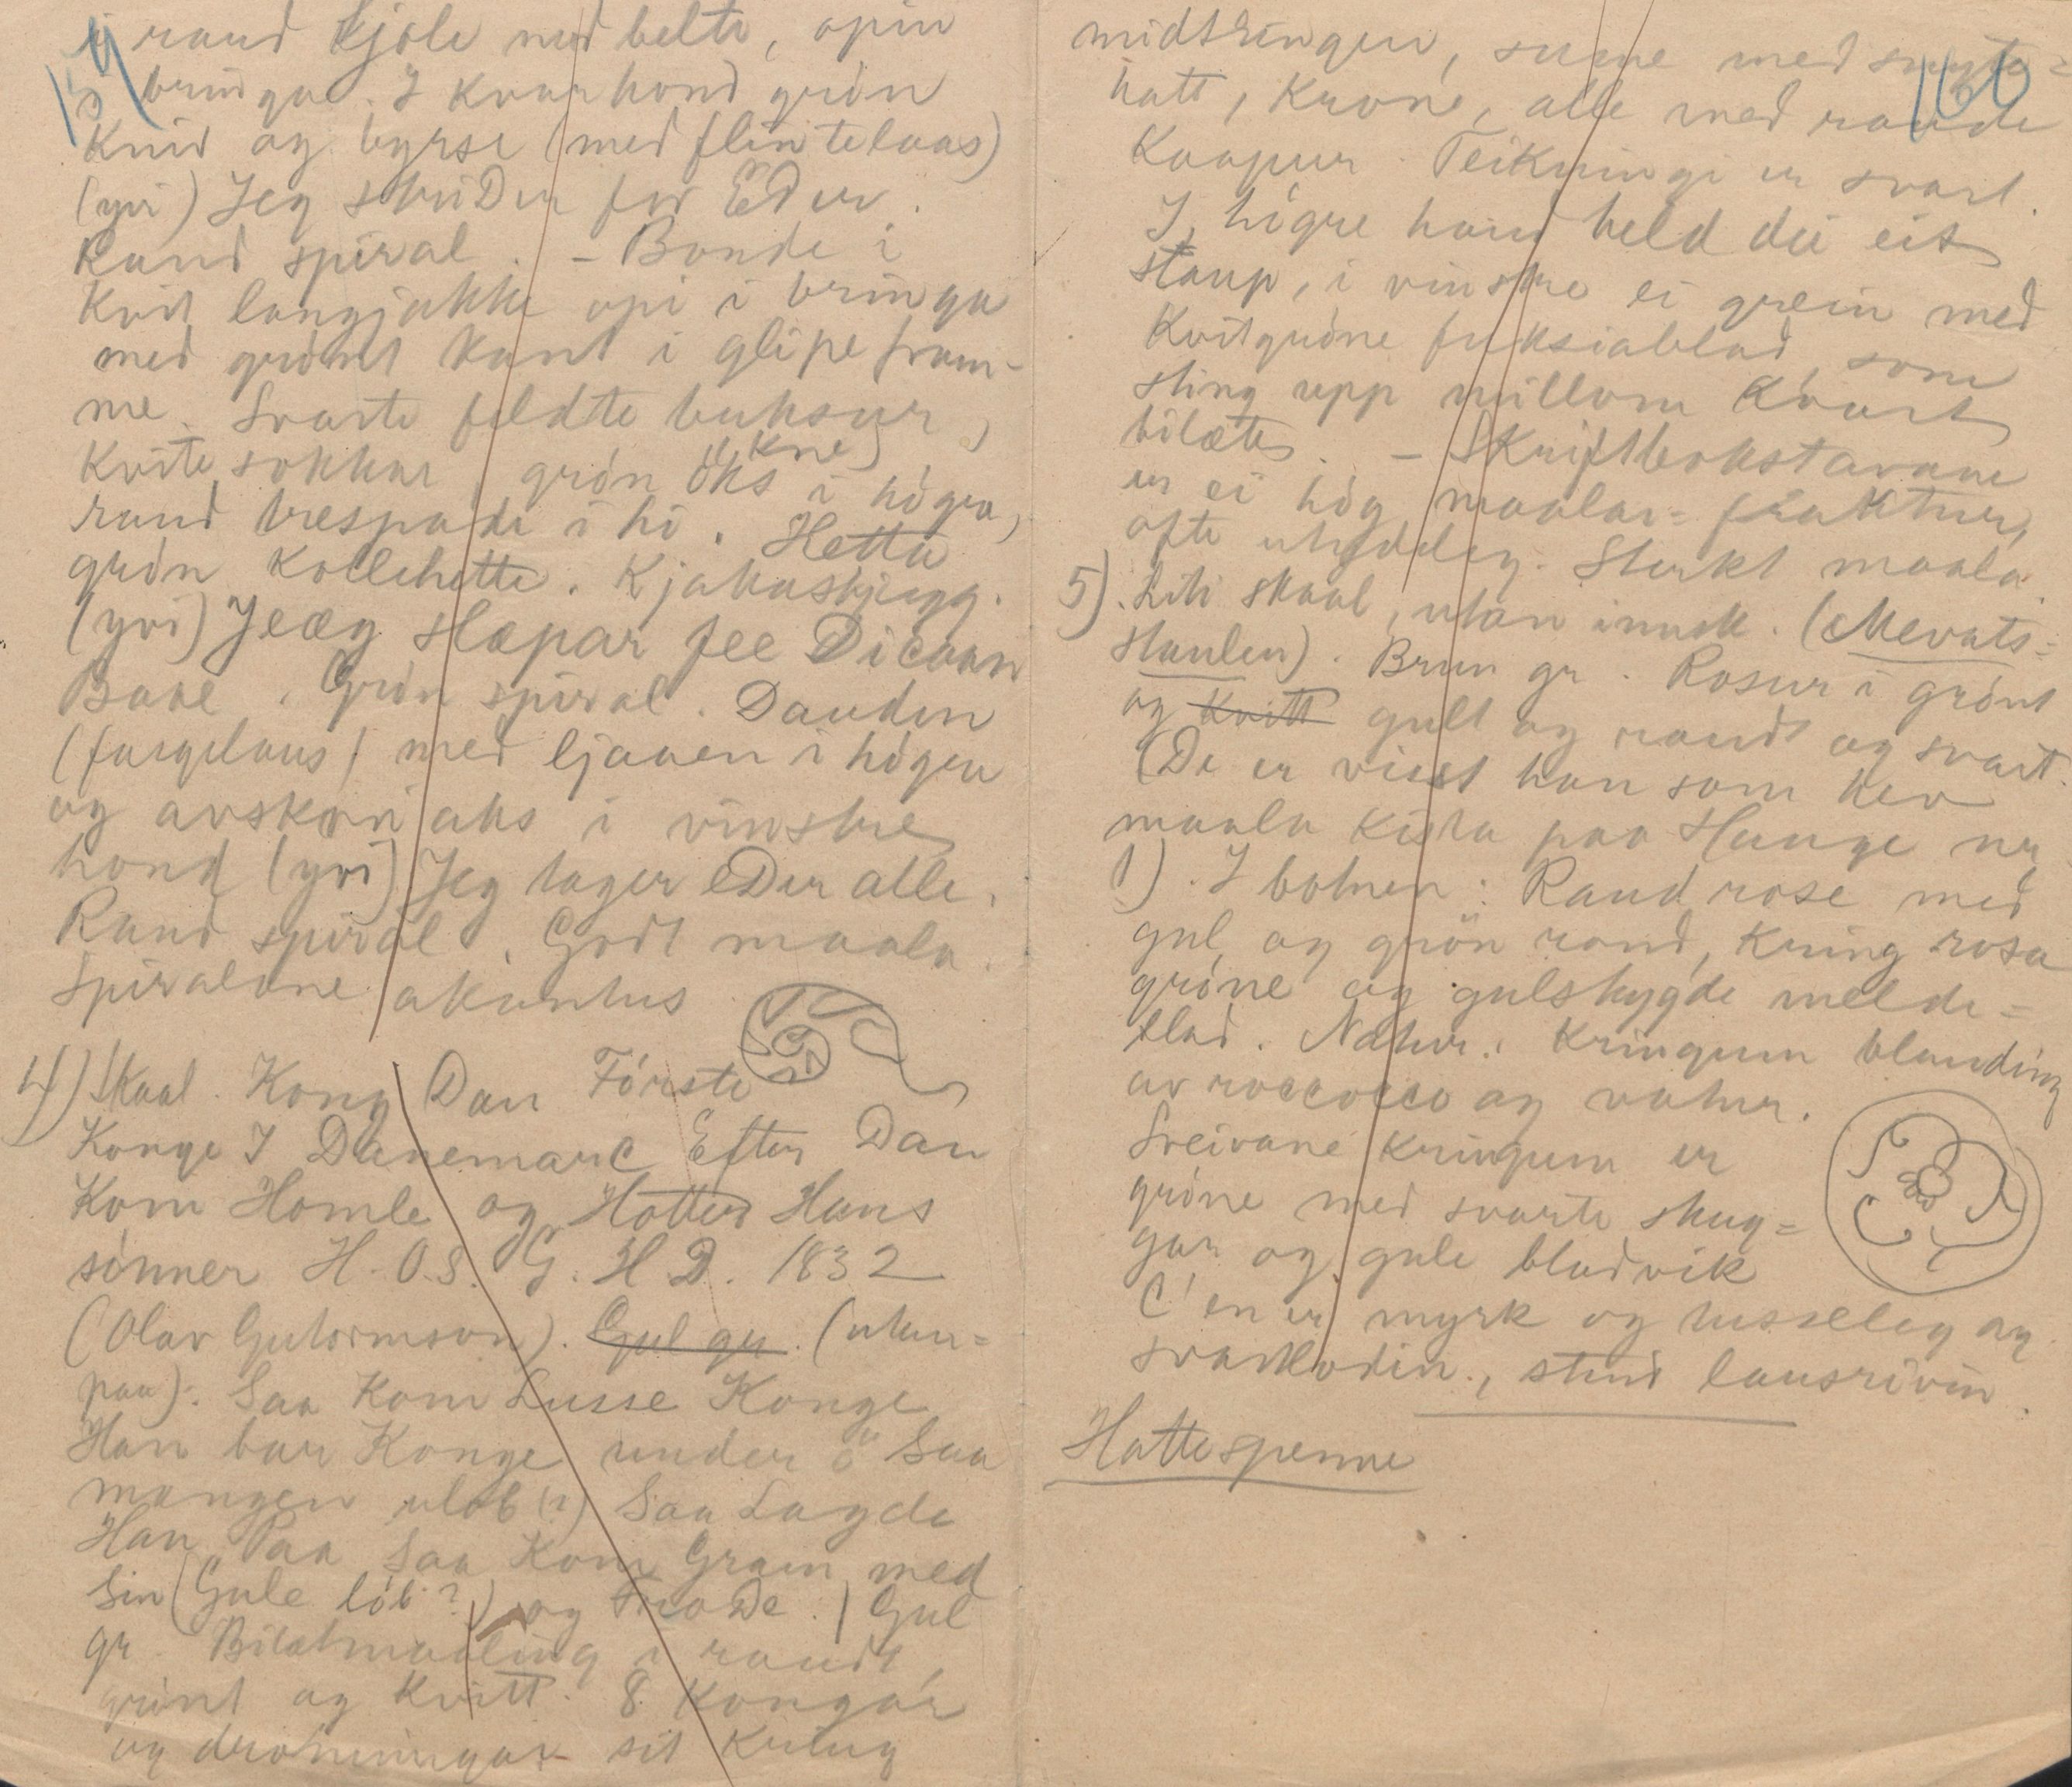 159
i raud kjole med belte, opin
i bringa. I kvar hond grön
kniv og byrse (med flintelaas)
(yvi) Jeg striDer for EDer.
Raud spiral. - Bonde i
kvit langjakke opi i bringa
med grönt kant i glipe fram-
me. Svarte feldte buksur,
(kne)
kvite sokkar, grön öks i högra,
raud trespade i hi. Hette
grön kollehette. Kjakaskjegg.
(yvi) Jeæg slæpar fee Dicaan
Bane. Grön spiral. Dauden
(fargelaus) med ljaaen i högra
og avskori aks i vinstre
hond (yvi) Jeg tager eDer alle.
Raud spiral. Godt maala.
Spiralane akantus
4) Skaal. Kong Dan Förste
Konge I Danemarc Efter Dan
Kom Homle og Hotter Hans
sönner H. O. S. G. H D. 1832
(Olav Gutormson). Gul gr. (utan-
paa): Saa Kom Lusse Konge
Han bar Konge under ö Saa
mangen ulob (?) Saa Lagde
Han Paa Saa Kom Gram med
Sin (Gule löb?) og FroDe. / Gul
gr. Bilætmaaling i raudt,
grönt og kvitt. 8 kongar
og dronningar sit kring
160
midtringen, sume med
hatt, krone, alle med raude
kaapur. Teikninge er svart.
I högre hand held dei eit
staup, i vinstre ei grein med
kvitgröne fuksiablad, som
sting upp millom kvart
bilæte. - Skriftbokstavane
er ei hög maalar-fraktur,
ofte utydeleg. Sterkt maala.
5). Liti skaal, utan innsk. (Mevats-
staulen). Brun gr. Rosur i grönt
og kvitt gult og raudt og svart.
(De er visst han som hev
maala kista paa Hauge nr
1). I botnen: Raud rose med
gul og grön rand, kring rosa
gröne og gulskygde melde-
blad. Natur. Kringum blanding
av roccocco og natur.
Sveivane kringum er
gröne med svarte skug-
gar og gule bladvik
C'en er myrk og tusseleg og
svartlodin, stend lausrivin.
Hattespenne